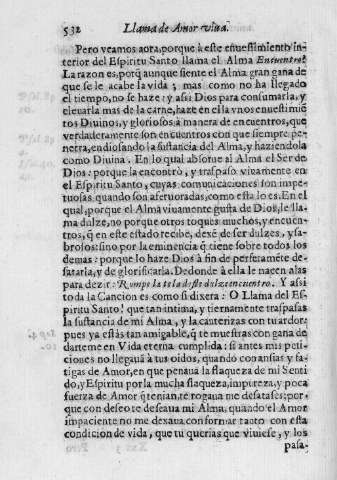 532 Llama de Amor viua.
Pero veamos aora, porque à este enuestimiento in-
terior del Espiritu Santo llama el Alma Encuentro?
La razon es, porq̃ aunque siente el Alma gran gana de
que se le acabe la vida; mas como no ha llegado
el tiempo, no se haze: y assi Dios para consumarla, y
eleuarla mas de la carne, haze en ella vnos enuestimiẽ-
tos Diuinos, y gloriosos à manera de encuentros, que
verdaderamente son encuentros con que siempre pe-
netra, endiosando la sustancia del Alma, y haziendola
como Diuina. En lo qual absorue al Alma el Ser de
Dios: porque la encontrò, y traspaso viuamente en
el Espiritu Santo, cuyas comunicaciones son impe-
tuosas, quando son aferuoradas, como esta lo es. En el
qual, porque el Alma viuamente gusta de Dios, le lla-
ma dulze, no porque otros toques muchos, y encuen-
tros, q̃ en este estado recibe, dexẽ de ser dulzes, y sa-
brosos: sino por la eminencia q̃ tiene sobre todos los
demas: porque lo haze Dios à fin de perfetamẽte de-
satarla, y de glorificarla. De donde à ella le nacen alas
para dezir: Rompe la tela deste dulze encuentro. Y assi
toda la Cancion es como si dixera: O Llama del Es-
piritu Santo! que tan intima, y tiernamente traspasas
la sustancia de mi Alma, y la cauterizas con tu ardor;
pues ya estàs tan amigable, q̃ te muestras con gana de
darteme en Vida eterna cumplida: si antes mis peti-
ciones no llegauã à tus oidos, quando con ansias, y fa-
tigas de Amor, en que penaua la flaqueza de mi Senti
do, y Espiritu por la mucha flaqueza, impureza, y poca
fuerza de Amor q̃ tenian, te rogaua me desatases; por-
que con deseo te deseaua mi Alma, quando el Amor
impaciente no me dexaua conformar tanto con esta
condicion de vida, que tu querias que viuiese, y los
pasa-